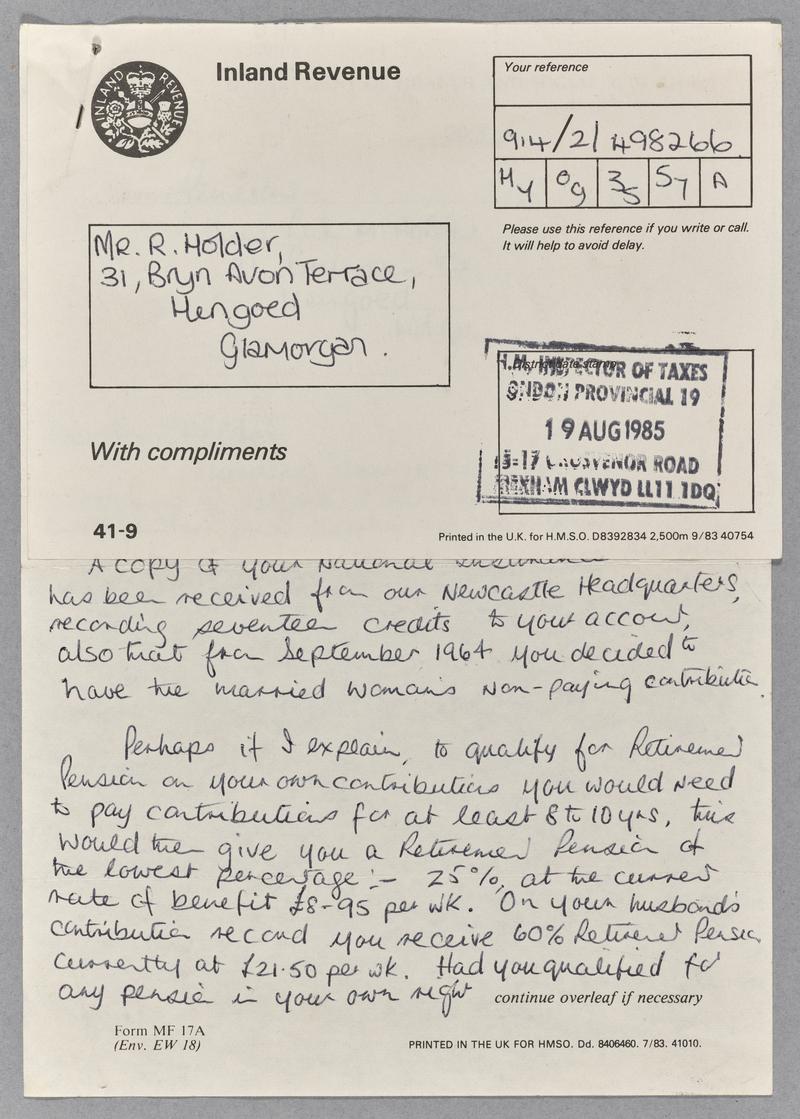 INLAND REVENUE
Inland Revenue
Your reference
914/2/498266
HY 09 35 57 A
Please use this reference if you write or call.
It will help to avoid delay.
Mr. R. Holder,
31, Bryn Avon Terrace,
Hengoed
Glamorgan.
H.M. INSPECTOR OF TAXES
ONDON PROVINCIAL 19
19 AUG 1985
15-17 GROSVENOR ROAD
REXHAM CLWYD LL11 1DQ
With compliments
41-9
Printed in the U.K. for H.M.S.O. D8392834 2,500m 9/83 40754
A copy of your National Insurance
has been received from our Newcastle Headquarters,
recording seventeen credits to your account,
also that from September 1964 you decided to
have the married woman's non-paying contribution.
Perhaps if I explain, to qualify for Retirement
Pension on your own contributions you would need
to pay contributions for at least 8 to 10 yrs, this
would then give you a Retirement Pension of
the lowest percentage :- 25%, at the current
rate of benefit £8-95 per wk. On your husband's
contribution record you receive 60% Retirement Pension
currently at £21.50 per wk. Had you qualified for
any pension in your own right
continue overleaf if necessary
Form MF 17A
(Env. EW 18)
PRINTED IN THE UK FOR HMSO. Dd. 8406460. 7/83. 41010.